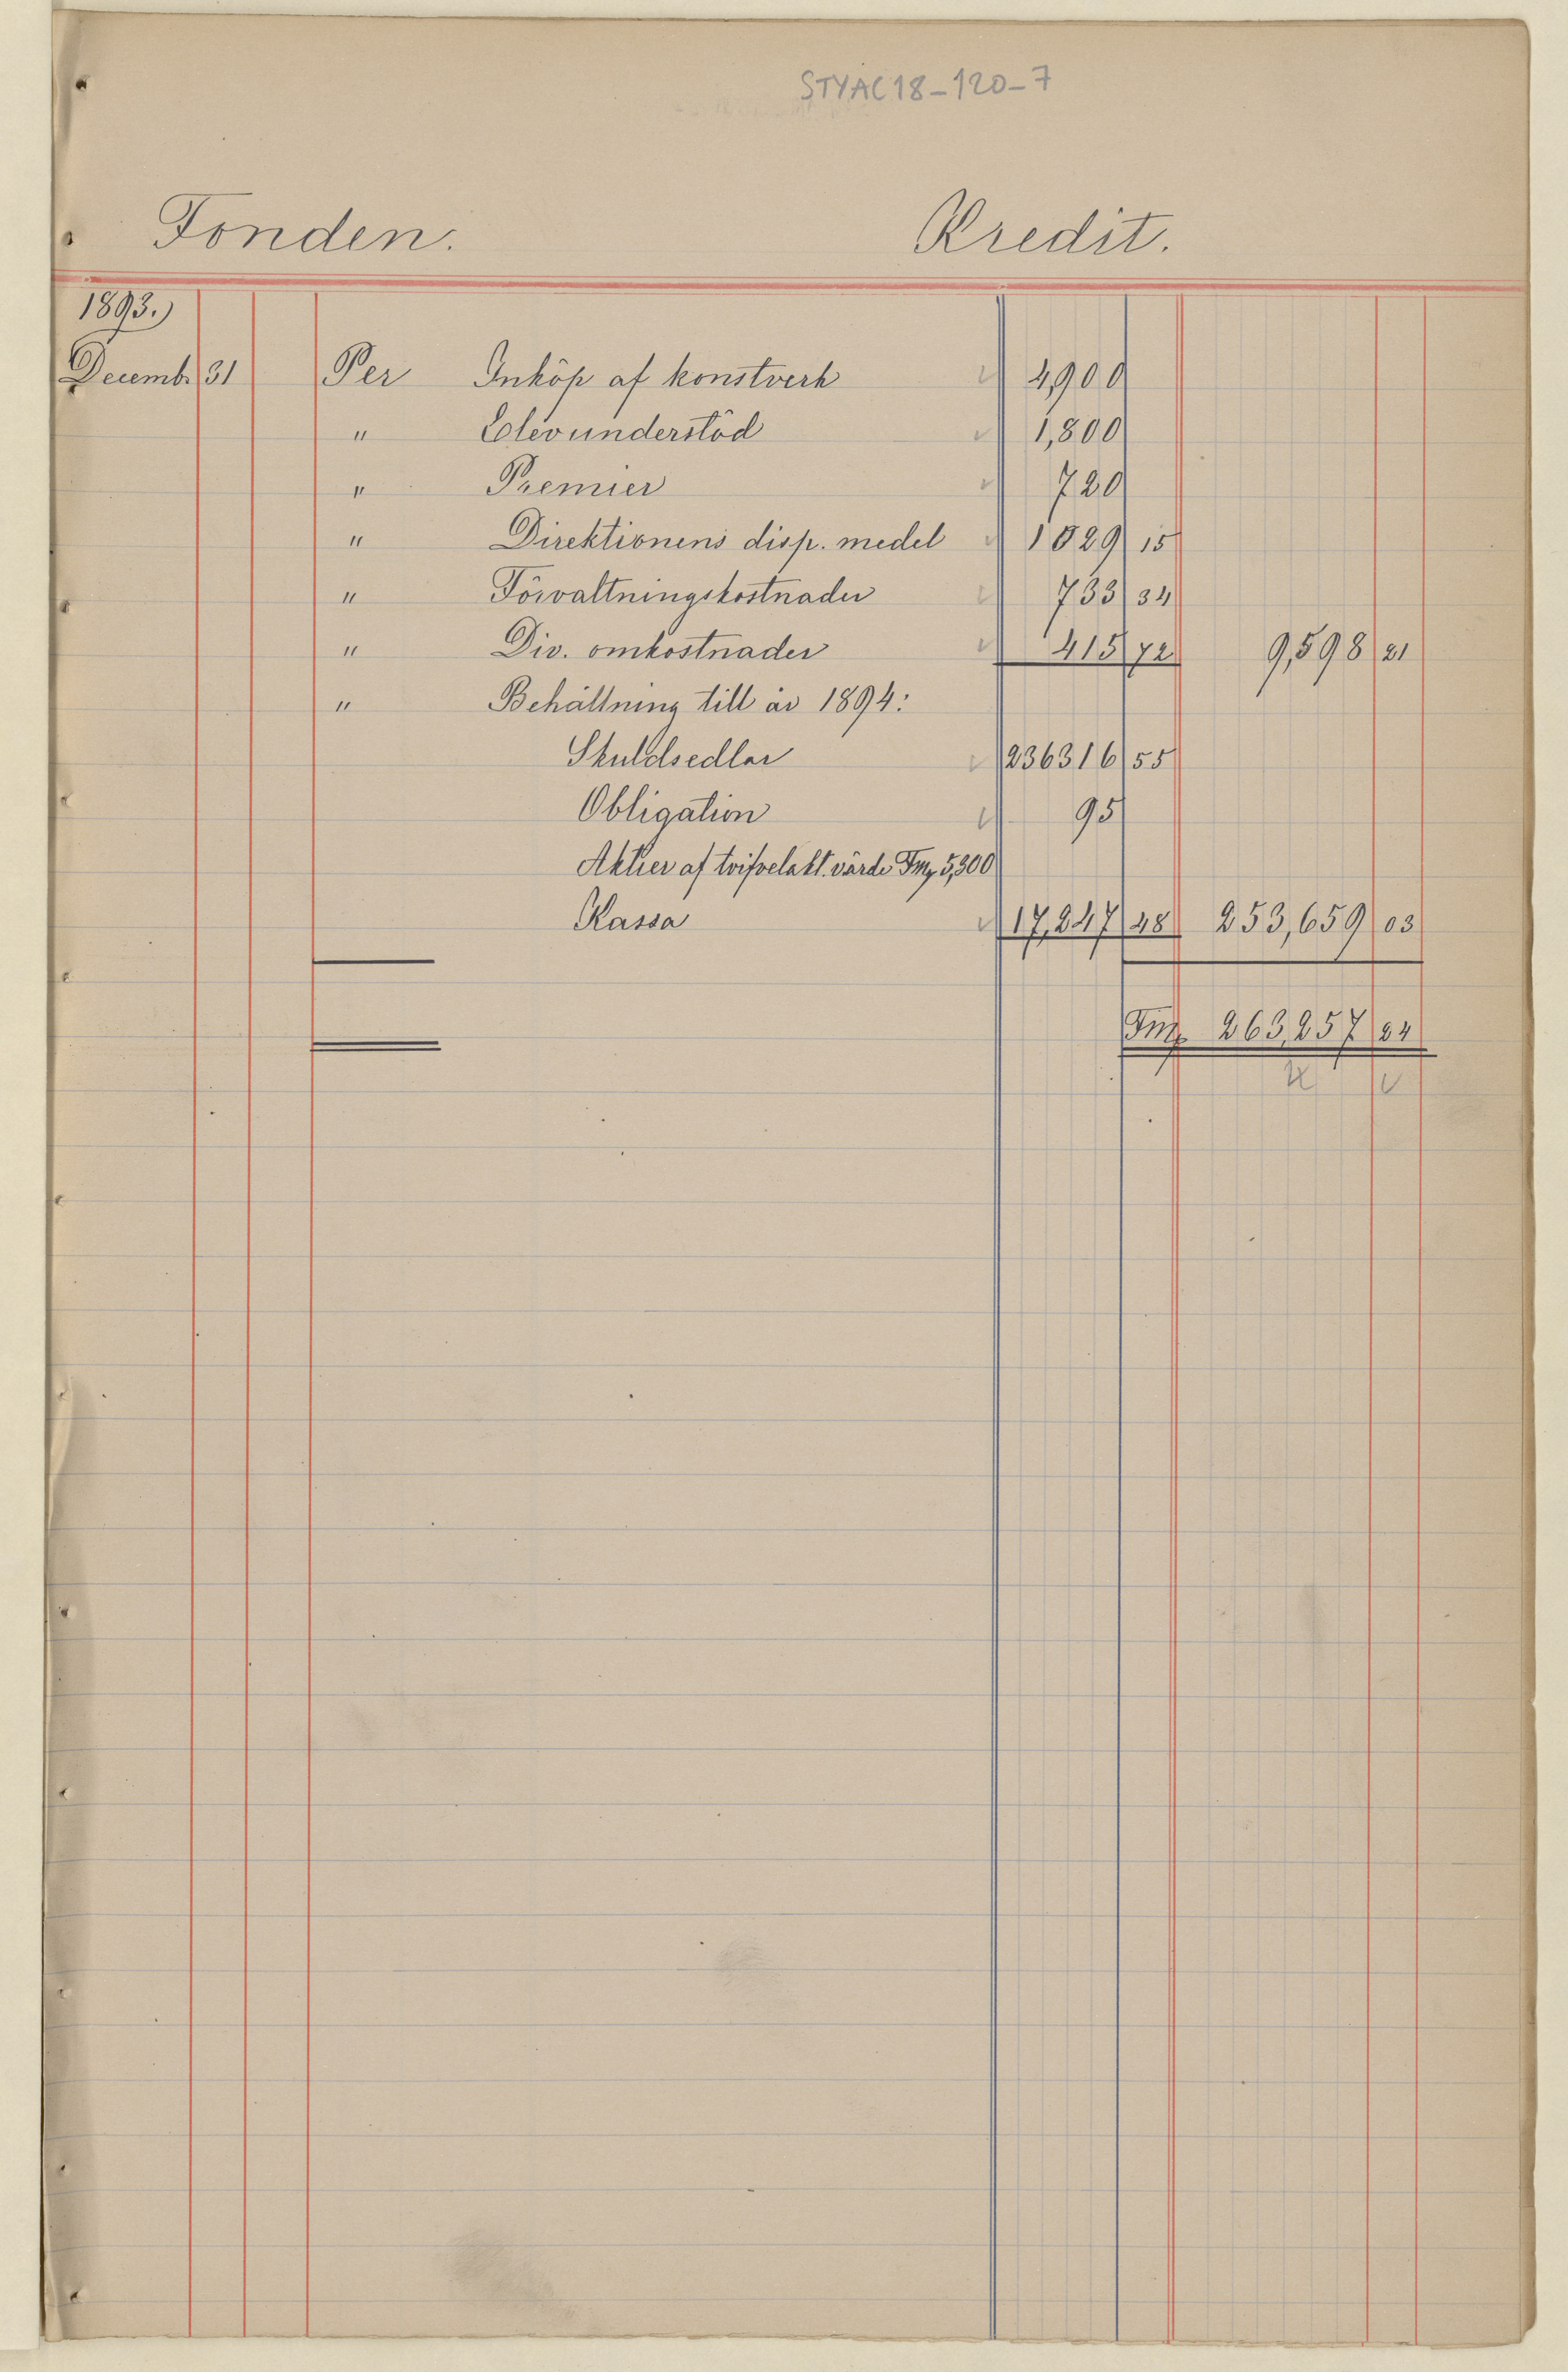 STYAC18-120-7
Fonden. Kredit.
1893.
Decemb. 31 Per Inköp af konstverk 4900
" Elevunderstöd 1,800
" Premier 720
" Direktionens disp. medel 1029 15
" Förvaltningskostnader 733 34
" Div. omkostnader 415 72 9,598 21
" Behållning till år 1894:
Skuldsedlar 236316 55
Obligation 95
Aktier af tvifvelakt. värde Fmk 5,300
Kassa 17,247 48 253,659 03
Fmk 263,257 24